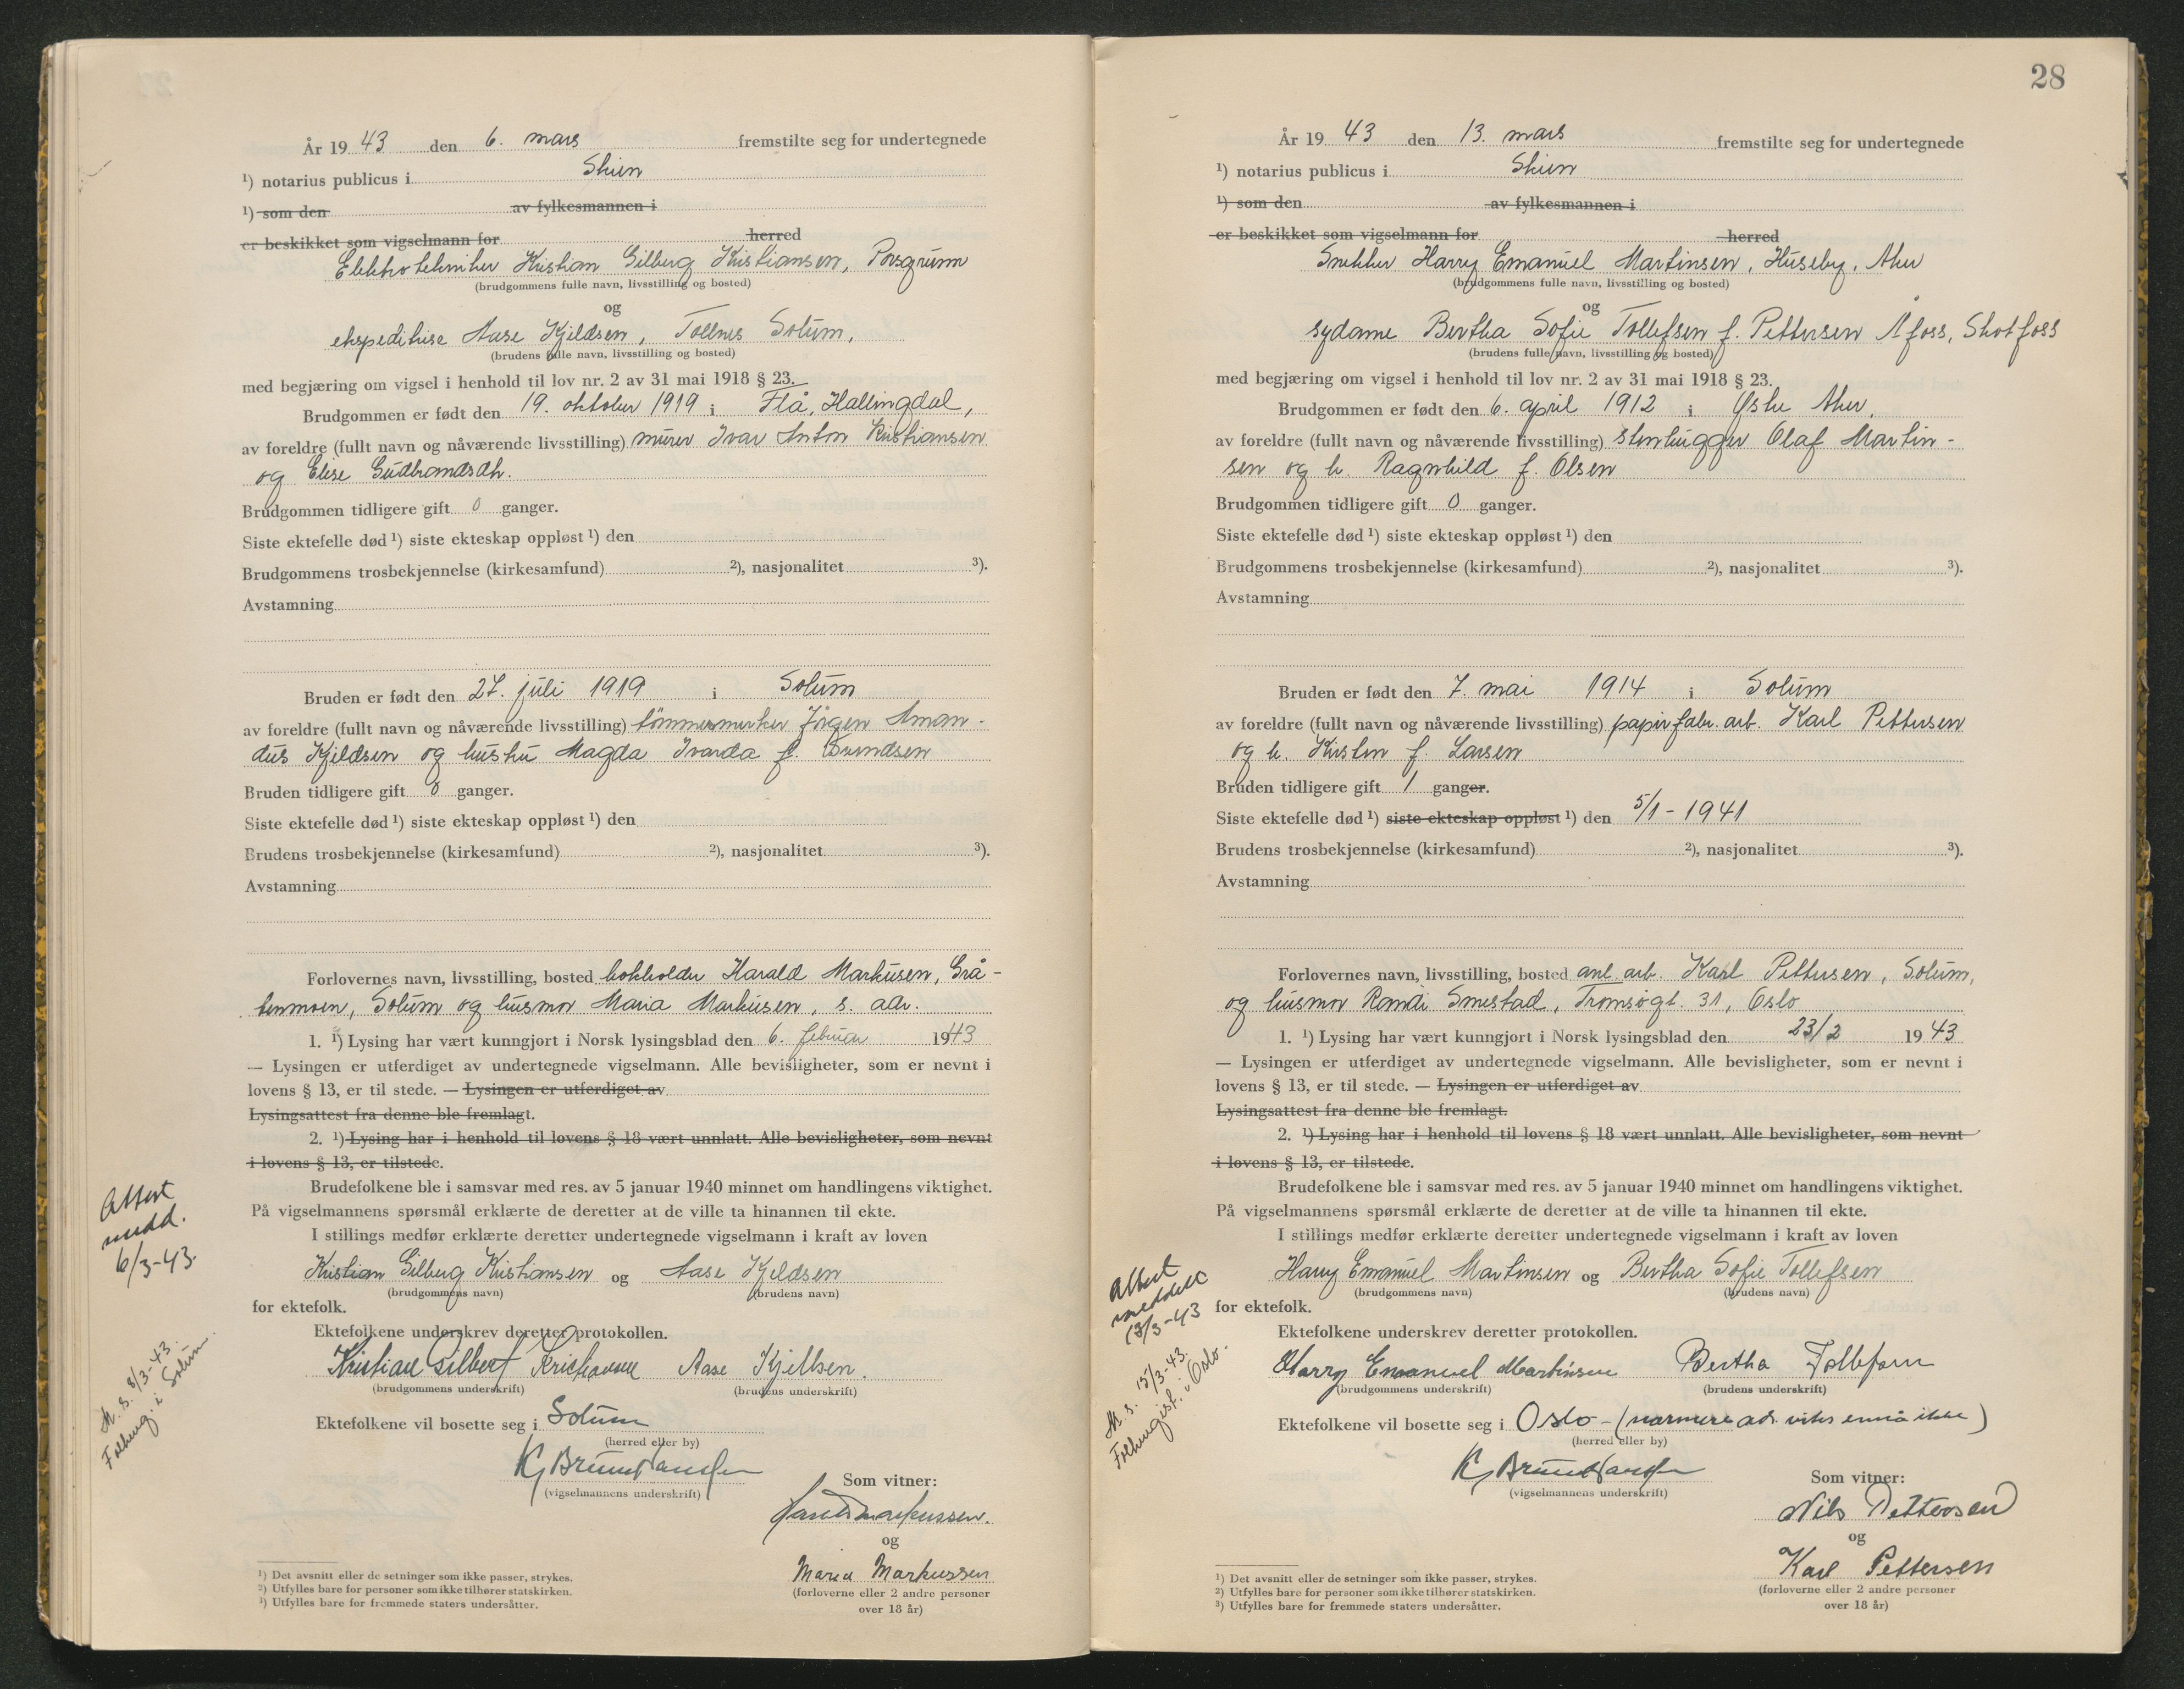 År 19 43 den 6. mars fremstilte seg for undertegnede
¹) notarius publicus i Skien
¹) som den av fylkesmannen i
er beskikket som vigselmann for herred
Elektrotekniker Kristian Gilberg Kristiansen, Porsgrunn
(brudgommens fulle navn, livsstilling og bosted)
og
ekspeditrise Aase Kjeldsen, Tollnes Solum,
(brudens fulle navn, livsstilling og bosted)
med begjæring om vigsel i henhold til lov nr. 2 av 31 mai 1918 § 23.
Brudgommen er født den 19. oktober 1919 i Flå, Hallingdal,
av foreldre (fullt navn og nåværende livsstilling) murer Ivar Anton Kristiansen
og Elise Gudbrandsdtr.
Brudgommen tidligere gift 0 ganger.
Siste ektefelle død ¹) siste ekteskap oppløst ¹) den
Brudgommens trosbekjennelse (kirkesamfund) ²), nasjonalitet ³).
Avstamning
Bruden er født den 27. juli 1919 i Solum
av foreldre (fullt navn og nåværende livsstilling) tømmermerker Jørgen Aman-
dus Kjeldsen og hustru Magda Ivarda f.
Bruden tidligere gift 0 ganger.
Siste ektefelle død ¹) siste ekteskap oppløst ¹) den
Brudens trosbekjennelse (kirkesamfund) ²), nasjonalitet ³).
Avstamning
Forlovernes navn, livsstilling, bosted bokholder Harald Markusen, Grå-
tenmoen, Solum og husmor Maria Markusen, s. adr.
1. ¹) Lysing har vært kunngjort i Norsk lysingsblad den 6. februar 1943
— Lysingen er utferdiget av undertegnede vigselmann. Alle bevisligheter, som er nevnt i
lovens § 13, er til stede. — Lysingen er utferdiget av
Lysingsattest fra denne ble fremlagt.
2. ¹) Lysing har i henhold til lovens § 18 vært unnlatt. Alle bevisligheter, som nevnt
i lovens § 13, er tilstede.
Brudefolkene ble i samsvar med res. av 5 januar 1940 minnet om handlingens viktighet.
På vigselmannens spørsmål erklærte de deretter at de ville ta hinannen til ekte.
I stillings medfør erklærte deretter undertegnede vigselmann i kraft av loven
Kristian Gilberg Kristiansen og Aase Kjeldsen
(brudgommens navn) (brudens navn)
for ektefolk.
Ektefolkene underskrev deretter protokollen.
Kristian Gilbert Kristiansen Aase Kjellsen.
(brudgommens underskrift) (brudens underskrift)
Ektefolkene vil bosette seg i Solum
(herred eller by)
(vigselmannens underskrift)
Som vitner:
Markussen.
og
Maria Markussen
(forloverne eller 2 andre personer
over 18 år)
¹) Det avsnitt eller de setninger som ikke passer, strykes.
²) Utfylles bare for personer som ikke tilhører statskirken.
³) Utfylles bare for fremmede staters undersåtter.
Attest
medd.
6/3-43.
M. s. 8/3-43.
Folkereg. i Solum.
28
År 19 43 den 13. mars fremstilte seg for undertegnede
¹) notarius publicus i Skien
¹) som den av fylkesmannen i
er beskikket som vigselmann for herred
Snekker Harry Emanuel Martinsen, Huseby, Aker
(brudgommens fulle navn, livsstilling og bosted)
og
sydame Bertha Sofie Tollefsen f. Pettersen Åfoss, Skotfoss
(brudens fulle navn, livsstilling og bosted)
med begjæring om vigsel i henhold til lov nr. 2 av 31 mai 1918 § 23.
Brudgommen er født den 6. april 1912 i Østre Aker,
av foreldre (fullt navn og nåværende livsstilling) stenhugger Olaf Martin-
sen og h. Ragnhild f. Olsen
Brudgommen tidligere gift 0 ganger.
Siste ektefelle død ¹) siste ekteskap oppløst ¹) den
Brudgommens trosbekjennelse (kirkesamfund) ²), nasjonalitet ³).
Avstamning
Bruden er født den 7. mai 1914 i Solum
av foreldre (fullt navn og nåværende livsstilling) papirfabr. arb. Karl Pettersen
og h. Kirsten f. Larsen
Bruden tidligere gift 1 ganger.
Siste ektefelle død ¹) siste ekteskap oppløst ¹) den 5/1 - 1941
Brudens trosbekjennelse (kirkesamfund) ²), nasjonalitet ³).
Avstamning
Forlovernes navn, livsstilling, bosted anl. arb. Karl Pettersen, Solum,
og husmor Randi Smestad, Tromsøgt. 31, Oslo
1. ¹) Lysing har vært kunngjort i Norsk lysingsblad den 23/2 19 43
— Lysingen er utferdiget av undertegnede vigselmann. Alle bevisligheter, som er nevnt i
lovens § 13, er til stede. — Lysingen er utferdiget av
Lysingsattest fra denne ble fremlagt.
2. ¹) Lysing har i henhold til lovens § 18 vært unnlatt. Alle bevisligheter, som nevnt
i lovens § 13, er tilstede.
Brudefolkene ble i samsvar med res. av 5 januar 1940 minnet om handlingens viktighet.
På vigselmannens spørsmål erklærte de deretter at de ville ta hinannen til ekte.
I stillings medfør erklærte deretter undertegnede vigselmann i kraft av loven
Harry Emanuel Martinsen og Bertha Sofie Tollefsen
(brudgommens navn) (brudens navn)
for ektefolk.
Ektefolkene underskrev deretter protokollen.
Harry Emanuel Martinsen Bertha Tollefsen
(brudgommens underskrift) (brudens underskrift)
Ektefolkene vil bosette seg i Oslo - (nærmere adr. vites ennå ikke)
(herred eller by)
(vigselmannens underskrift)
Som vitner:
Nils Pettersen
og
Karl Pettersen
(forloverne eller 2 andre personer
over 18 år)
¹) Det avsnitt eller de setninger som ikke passer, strykes.
²) Utfylles bare for personer som ikke tilhører statskirken.
³) Utfylles bare for fremmede staters undersåtter.
Attest
meddelt
13/3-43
M. s. 15/3-43.
Folkeregist. i Oslo.